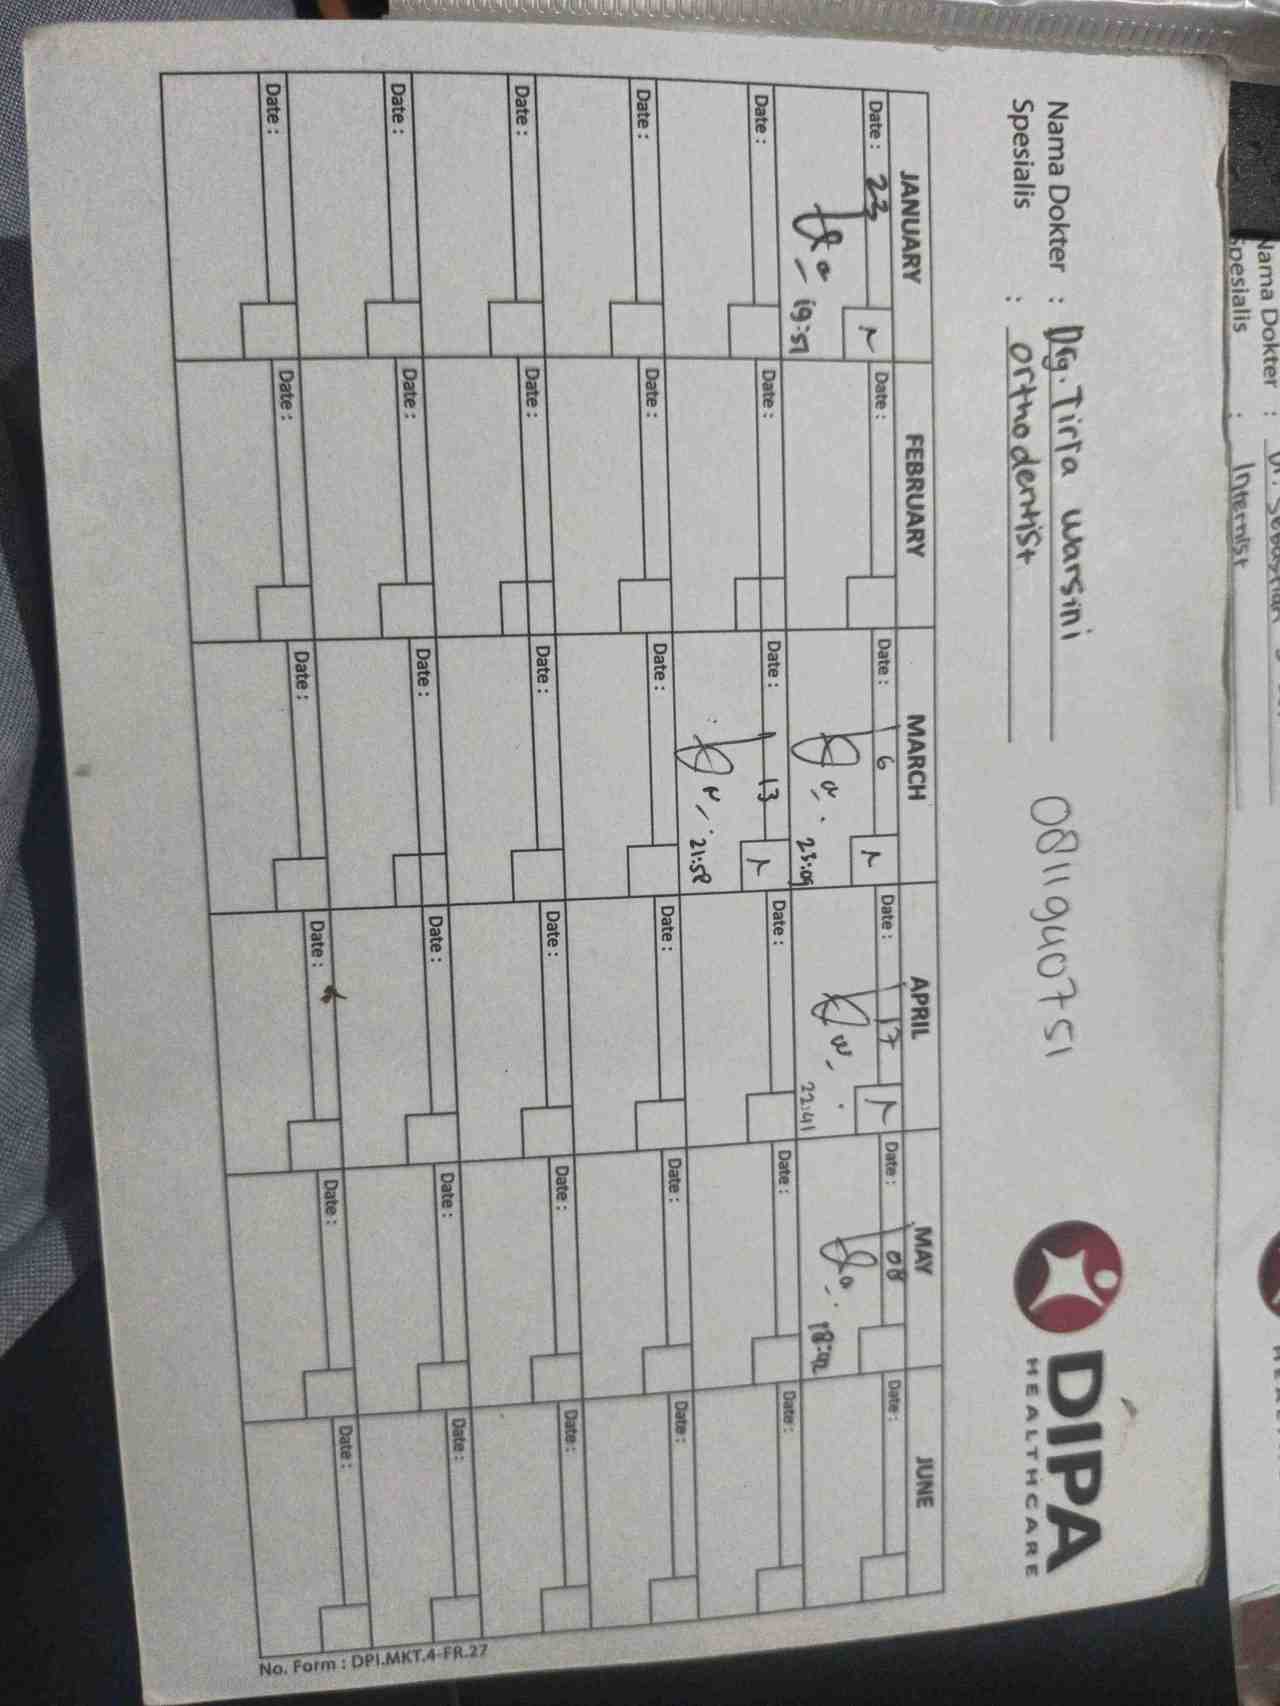 Nama Dokter : Drg. Tirta Warsini
Spesialis : Orthodentist
0811940751
DIPA
HEALTHCARE
JANUARY FEBRUARY MARCH APRIL MAY JUNE
Date : 23 Date : Date : 6 Date : 17 Date : 08 Date :
19:51 23:09 22:41 18:42
Date : Date : Date : 13 Date : Date : Date :
21:58
Date : Date : Date : Date : Date : Date :
Date : Date : Date : Date : Date : Date :
Date : Date : Date : Date : Date : Date :
Date : Date : Date : Date : Date : Date :
No. Form : DPI.MKT.4-FR.27
Nama Dokter : Dr.
Spesialis : Internist